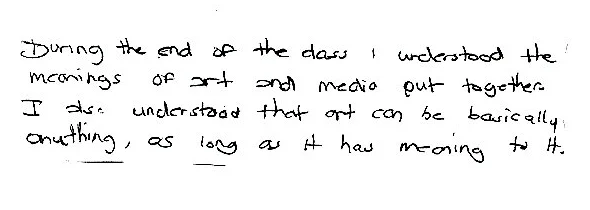 During the end of the class i understood the
meanings of art and media put together.
I also understood that art can be basically
anything, as long as it has meaning to it.